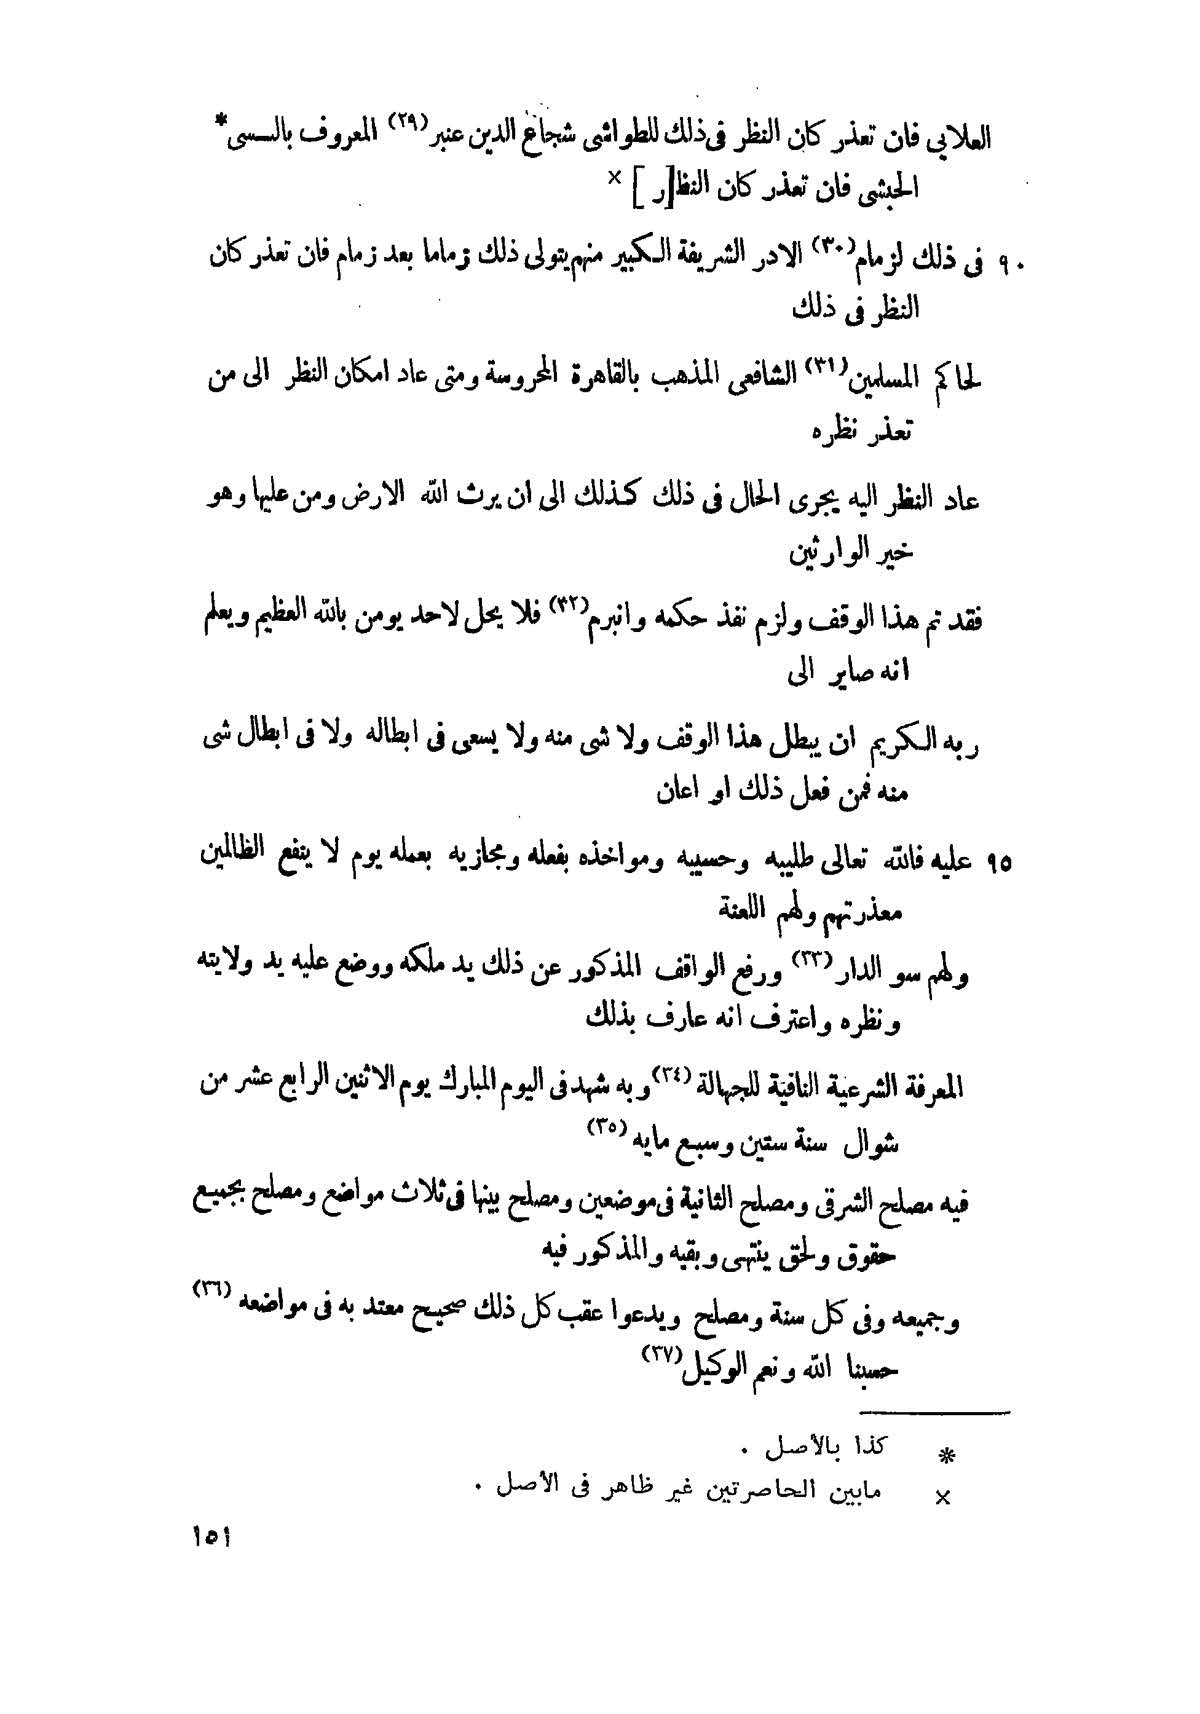 العلابي فان تعذر كان النظر فى ذلك للطواشى شجاع الدين عنبر(٢٩) المعروف بالسسى*
الحبشى فان تعذر كان النظ[ر] ×
٩٠ فى ذلك لزمام(٣٠) الادر الشريفة الكبير منهم يتولى ذلك زماما بعد زمام فان تعذر كان
النظر فى ذلك
لحاكم المسلمين(٣١) الشافعى المذهب بالقاهرة المحروسة ومتى عاد امكان النظر الى من
تعذر نظره
عاد النظر اليه يجرى الحال فى ذلك كذلك الى ان يرث الله الارض ومن عليها وهو
خير الوارثين
فقد تم هذا الوقف ولزم نفذ حكمه وانبرم(٣٢) فلا يحل لاحد يومن بالله العظيم ويعلم
انه صاير الى
ربه الكريم ان يبطل هذا الوقف ولا شى منه ولا يسعى فى ابطاله ولا فى ابطال شى
منه فمن فعل ذلك او اعان
٩٥ عليه فالله تعالى طليبه وحسيبه ومواخذه بفعله ومجازيه بعمله يوم لا ينفع الظالمين
معذرتهم ولهم اللعنة
ولهم سو الدار(٣٣) ورفع الواقف المذكور عن ذلك يد ملكه ووضع عليه يد ولايته
ونظره واعترف انه عارف بذلك
المعرفة الشرعية النافية للجهالة(٣٤) وبه شهد فى اليوم المبارك يوم الاثنين الرابع عشر من
شوال سنة ستين وسبع مايه(٣٥)
فيه مصلح الشرقى ومصلح الثانية فى موضعين ومصلح بينها فى ثلاث مواضع ومصلح بجميع
حقوق ولحق ينتهى وبقيه والمذكور فيه
وجميعه وفى كل سنة ومصلح ويدعوا عقب كل ذلك صحيح معتد به فى مواضعه(٣٦)
حسبنا الله ونعم الوكيل(٣٧)
* كذا بالأصل .
× مابين الحاصرتين غير ظاهر فى الأصل .
١٥١